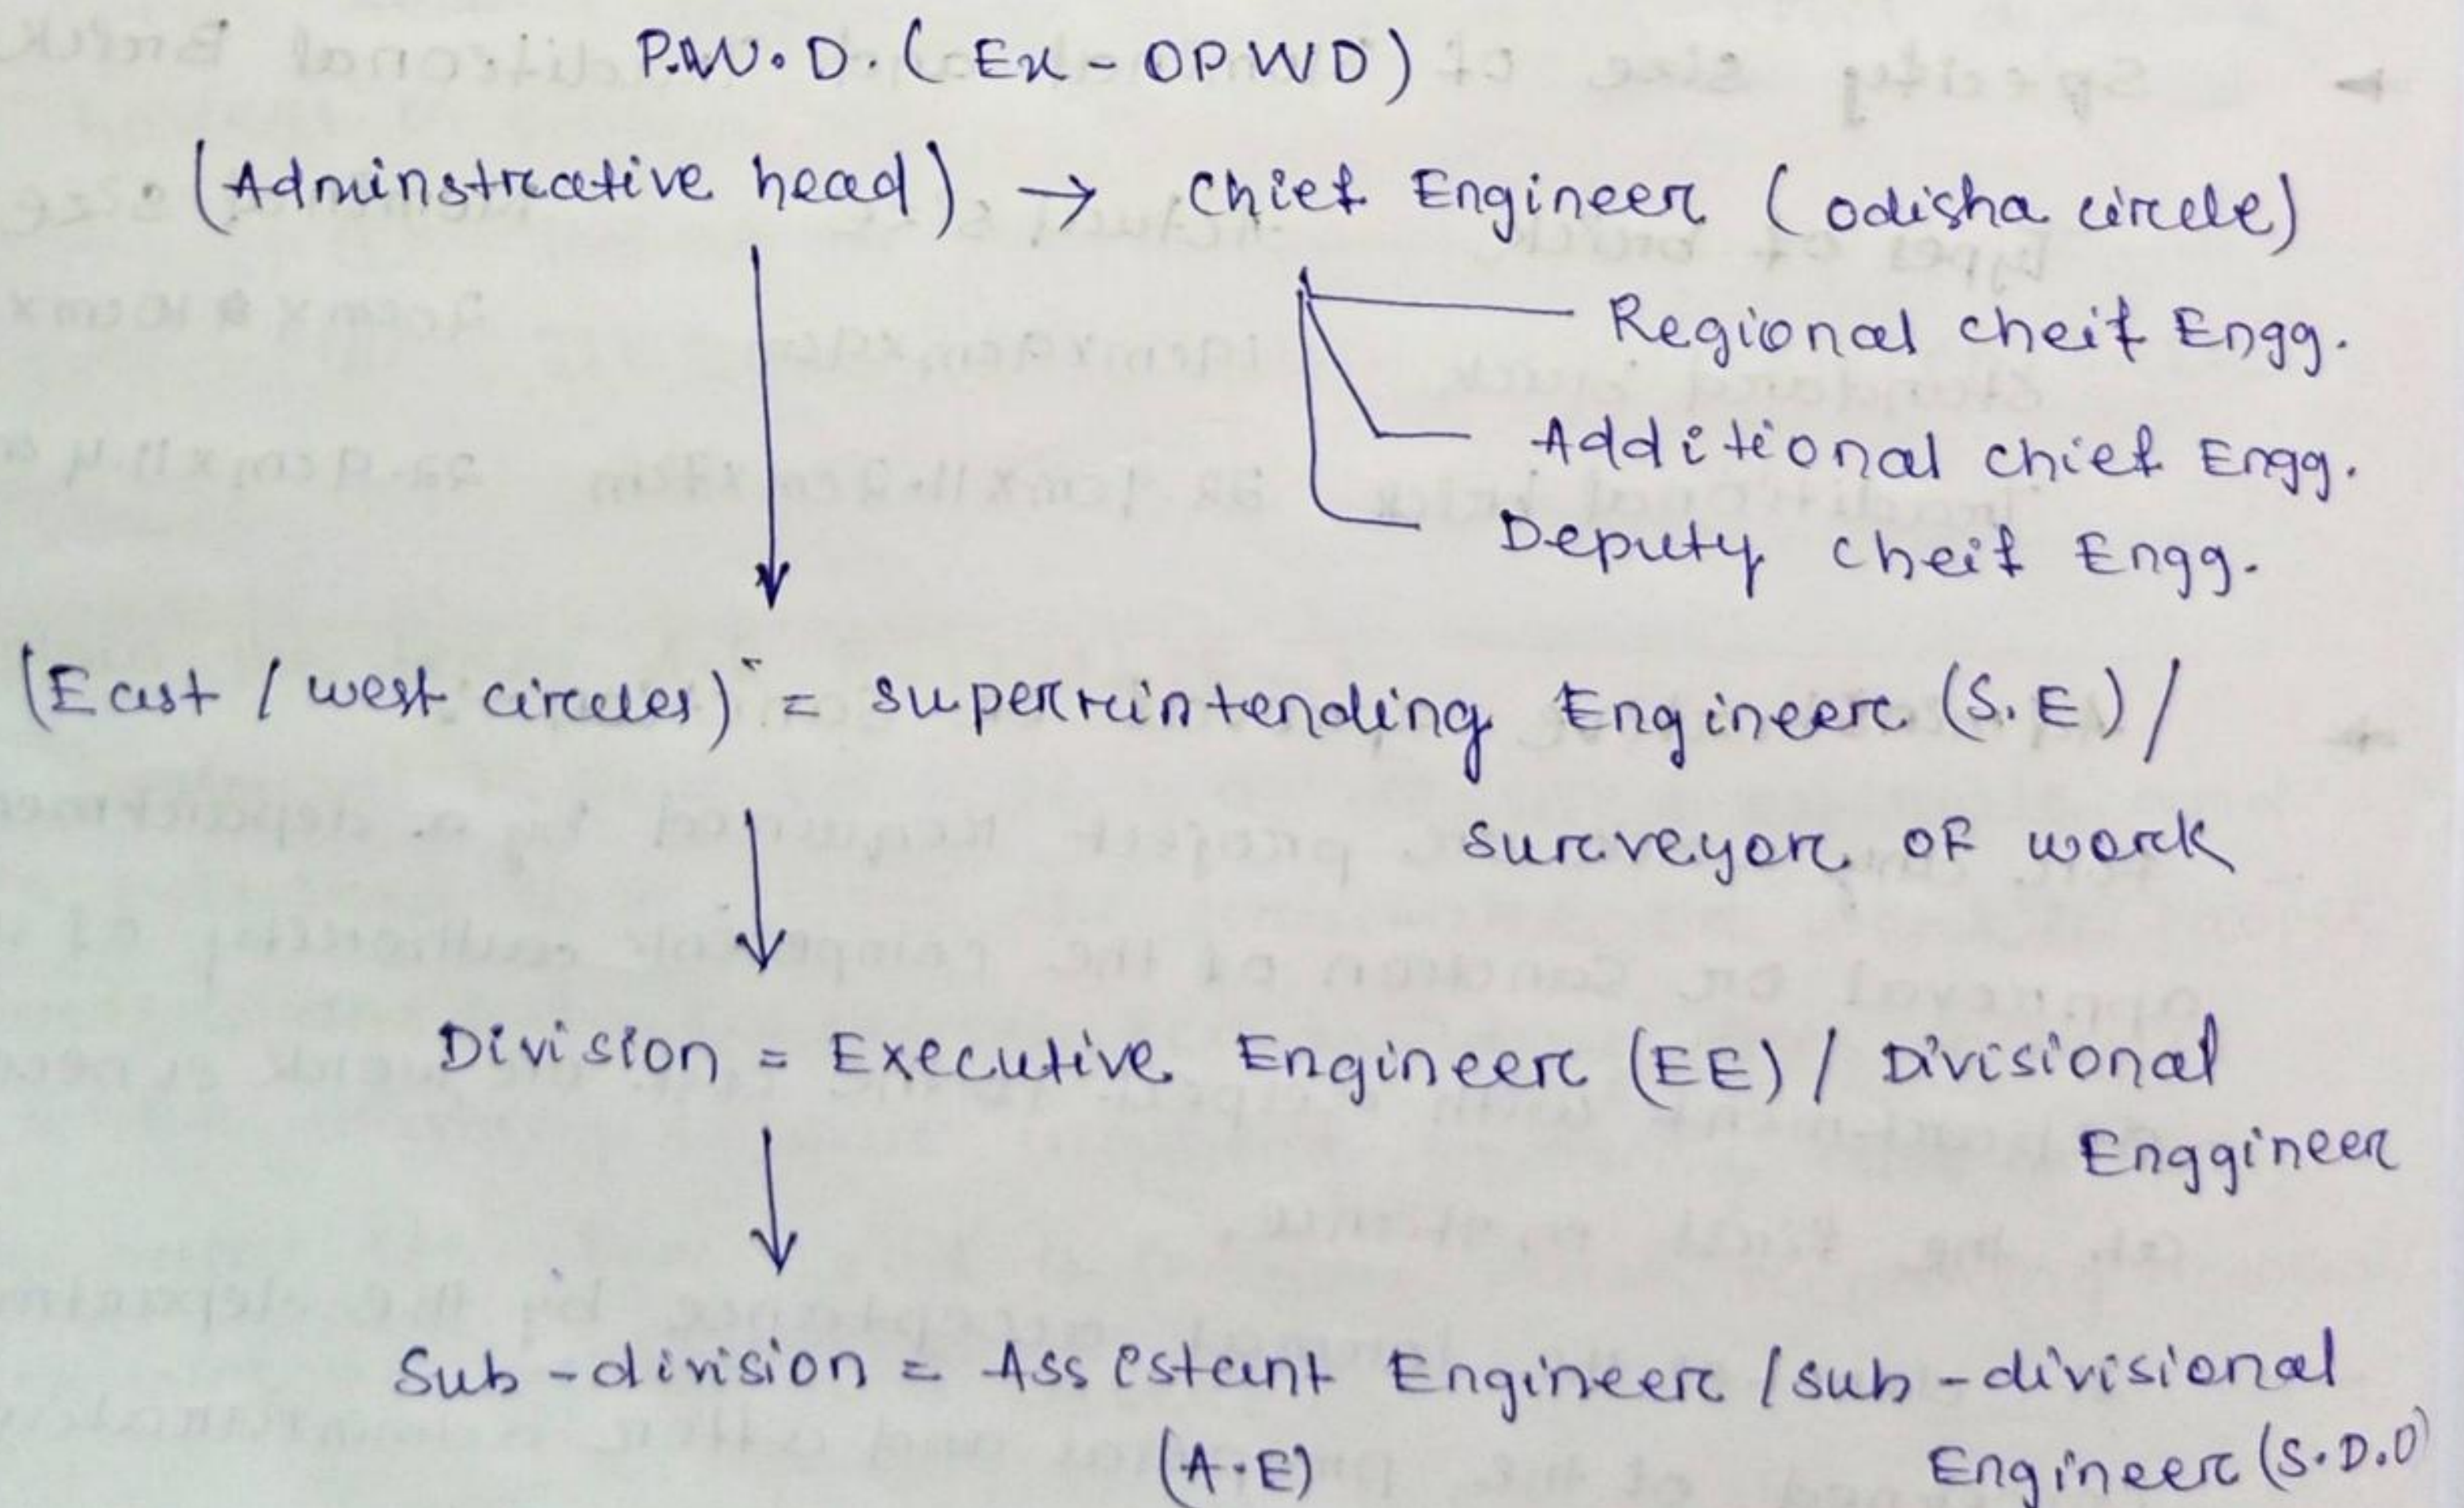 P.W.D. (Ex - OPWD)
(Adminstrative head) → Chief Engineer (odisha circle)
Regional cheif Engg.
Additional chief Engg.
Deputy cheif Engg.
(East / west circles) = superrintending Engineer (S.E) /
surveyor OF work
Division = Executive Engineer (EE) / Divisional
Enggineer
Sub-division = Assistant Engineer / sub-divisional
(A.E) Engineer (S.D.O)